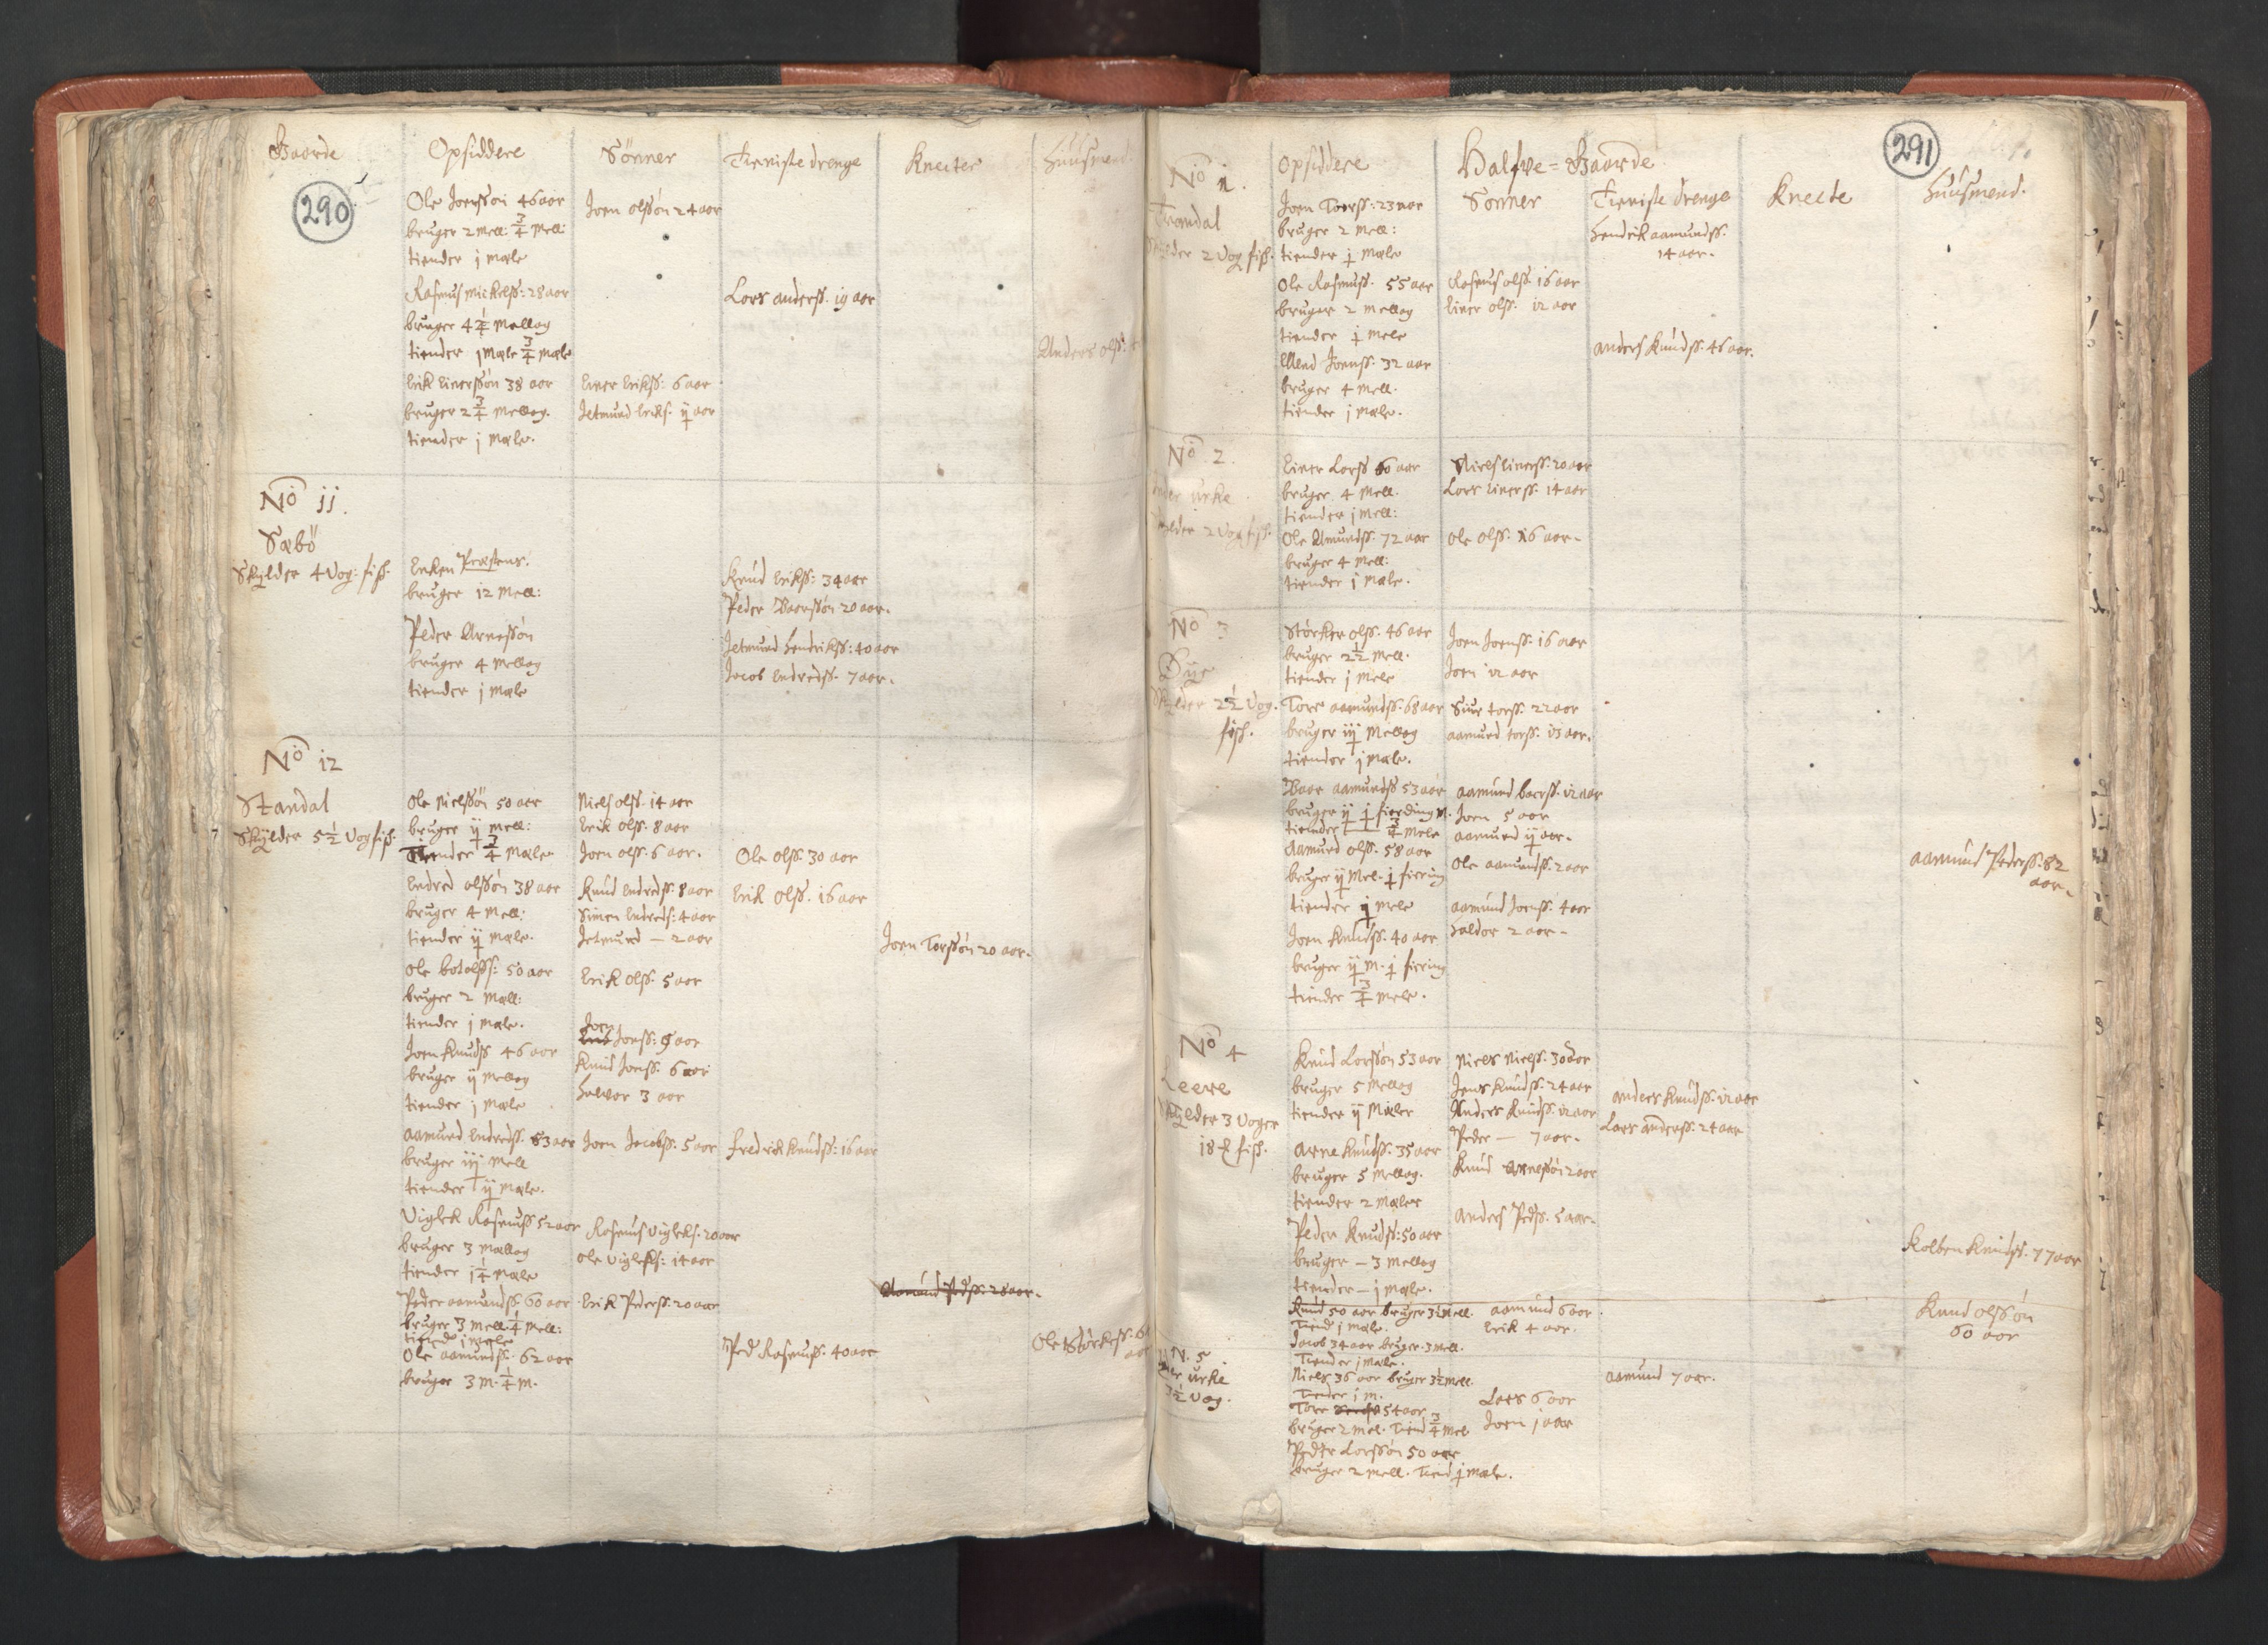 290
Gaarde
Opsiddere
Sønner
Tieniste drenge
Knecter
Huusmend.
Ole Joenssøn 46 aar
bruger 2 mell: 3/4 mell:
tiender j mæle
Joen olssøn 24 aar
Rasmus Mickelss: 28 aar
bruger 4 1/4 mellag
tiender j mæle 3/4 mæle
Lars anderss. 19 aar
Anders olss:
Erik Einerssøn 38 aar
bruger 2 3/4 mellag.
tiender j mæle.
Einer Erikss: 6 aar
Jetmund Eriks. ij aar
No jj.
Sæbö
Skylder 4 Vog: fisk.
Enken Præstens.
bruger 12 mell:
Knud Erikss: 34 aar
Peder Baarssøn 20 aar.
Peder Arnessøn
bruger 4 mellag
tiender j mæle
Jetmund Hendrikss: 40 aar
Jacob Endredss. 7 aar.
No 12
Standal
Skylder 5 1/2 Vog fisk.
Ole Nielssøn 50 aar
bruger ij mell:
Tiender 3/4 mæle
Niels olss. 14 aar
Erik olss. 8 aar
Joen olss. 6 aar.
Ole olss. 30 aar
Endred olssøn 38 aar
bruger 4 mell:
tiender ij mæle.
Knud Endredss. 8 aar
Simen Endreds: 4 aar
Jetmund — 2 aar
Erik olss. 16 aar
Joen Torssøn 20 aar.
Ole botolfss: 50 aar
bruger 2 mæll:
tiender j mæle.
Erik olss. 5 aar
Joen Knudss 46 aar
bruger ij mellag
tiender j mæle
Joen
Jonss: 9 aar
Knud Jonss. 6 aar
Halvor 3 aar
Aamund Endredss. 53 aar
bruger iij mell
tiender ij mæle.
Joen Jacobss: 5 aar
fredrick Knudss: 16 aar
Viglek Rasmuss 52 aar
bruger 3 mællag
tiender j 1/4 mæle
Rasmus Vigleks. 20 aar
Ole Vigleks: 14 aar
Peder aamundss. 60 aar
bruger 3 mell. 1/4 mell:
tiend j mæle
Erik Pederss. 20 aar
Aamund Pedss. 28 aar.
Ole aamundss. 62 aar
bruger 3 m. 1/4 m.
Ped Rasmuss. 40 aar
Ole Størkess. 6
aar
291
Halfve=Gaarde
No 1.
Opsiddere
Sønner
Tieniste drenge
Knecte
Huusmend.
Trandal
Skylder 2 Vog fisk.
Joen Torss: 23 aar
bruger 2 mell:
tiender j mæle
Hendrik aamundss.
14 aar.
Ole Rasmuss. 55 aar
bruger 2 mellag
tiender j mele
Rasmus olss. 16 aar
Einer olss. 12 aar
Anders Knudss. 46 aar.
Joenss. 32 aar
bruger 4 mell.
tiender j mæle.
No 2.
urke
Skylder 2 Vog fisk.
Einer Larss 60 aar
bruger 4 mell.
tiender j mell:
Niels Einerss: 20 aar
Lars Einerss. 14 aar
Ole Amundss. 72 aar
bruger 4 mell:
tiender j mæle.
Ole olss. 16 aar.
No 3
Øye
Skylder 2 1/2 Vog.
fisk.
Størker olss. 46 aar
bruger 2 1/2 mell.
tiender j mele
Joen Joenss. 16 aar
Joen 12 aar
Tore aamundss. 68 aar
bruger iij mellag
tiender j mæle.
Siur torss. 22 aar
aamund torss. 13 aar.
Baar aamundss 53 aar
bruger ij j fierding m.
tiender 3/4 mele
aamund baarss. 12 aar
Joen 5 aar
aamund ij aar.
Aamund olss. 58 aar
bruger ij Mel. j fiering
tiender j mele
Ole aamundss. 2 aar
aamund Pederss. 82
aar.
Joen Knudss. 40 aar
bruger ij m. j fiering
tiender 3/4 mele.
aamund Joenss. 4 aar
Haldor 2 aar.
No 4
Leere
Skylder 3 Voger
18 fisk.
Knud Larssøn 53 aar
bruger 5 mellag
tiender ij mæler
Niels Nielss. 30 aar
Jens Knudss. 24 aar
Anders Knudss. 12 aar
Peder — 7 aar.
Anders Knudss. 12 aar
Lars anderss. 24 aar
Arne Knudss. 35 aar
bruger 5 mellag.
tiender 2 mæler
Knud Arnessøn 2 aar
Peder Knudss: 50 aar
bruger — 3 mellag
tiender — j mæle.
Anders Pedss. 5 aar.
Kolben Knudss. 77 aar
N. 5
urke
3 1/2 Vog.
Knud 50 aar bruger 3 1/2 mell.
Tiend j mæle.
aamund 6 aar.
Erik 4 aar.
Knud olssøn
60 aar
Jacob 34 aar bruger 3 mell.
Tiender j mæle.
Niels 36 aar bruger 3 1/2 mell.
Tiender j m.
aamund 7 aar.
Tore 54 aar
bruger 2 mel. Tiend 3/4 mel
Lars 6 aar
Joen j aar
Peder Larssøn 50 aar
bruger 2 mell. Tiend j mæle.